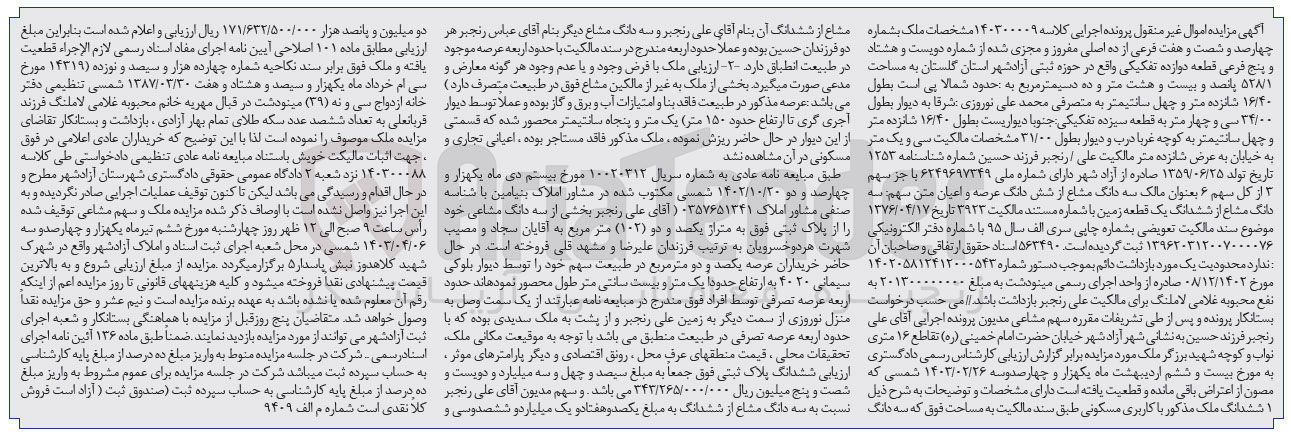 آگهی مزایده اموال غیر منقول پرونده اجرایی کلاسه ۱۴۰۳۰۰۰۰۹مشخصات ملک بشماره
چهارصد و شصت و هفت فرعی از ده اصلی مفروز و مجزی شده از شماره دویست و هشتاد
و پنج فرعی قطعه دوازده تفکیکی واقع در حوزه ثبتی آزادشهر استان گلستان به مساحت
۵۲۸/۱ پانصد و بیست و هشت متر و ده دسیمترمربع به :حدود شمالا پی است بطول
۱۶/۴۰ شانزده متر و چهل سانتیمتر به متصرفی محمد علی نوروزی :شرقا به دیوار بطول
۳۴/۰۰ سی و چهار متر به قطعه سیزده تفکیکی:جنوبا دیواریست بطول ۱۶/۴۰ شانزده متر
و چهل سانتیمتر به کوچه غربا درب و دیوار بطول ۳۱/۰۰ مشخصات مالکیت سی و یک متر
به خیابان به عرض شانزده متر مالکیت علی / رنجبر فرزند حسین شماره شناسنامه ۱۲۵۳
تاریخ تولد ۱۳۵۹/۰۶/۲۵ صادره از آزاد شهر دارای شماره ملی ۶۲۴۹۶۹۷۳۴۹ با جز سهم
۳ از کل سهم ۶ بعنوان مالک سه دانگ مشاع از شش دانگ عرصه و اعیان متن سهم: سه
دانگ مشاع از ششدانگ یک قطعه زمین با شماره مستند مالکیت ۳۹۲۳ تاریخ ۱۳۷۶/۰۴/۱۷
موضوع سند مالکیت تعویضی بشماره چاپی سری الف سال ۹۵ با شماره دفتر الکترونیکی
۱۳۹۶۲۰۳۱۲۰۰۷۰۰۰۰۷۶ ثبت گردیده است. ۵۶۳۴۹۰ اسناد حقوق ارتفاقی و صاحبان آن
:ندارد محدودیت یک مورد بازداشت دائم بموجب دستور شماره ۱۴۰۲۰۵۸۱۲۴۱۲۰۰۰۵۴۳
مورخ ۰۸/۱۲/۱۴۰۲ صادره از واحد اجرای رسمی مینودشت به مبلغ ۲۰۱۳۰۰۰۰۰۰۰ به
نفع محبوبه غلامی لاملنگ برای مالکیت علی رنجبر بازداشت باشد.//می حسب درخواست
بستانکار پرونده و پس از طی تشریفات مقرره سهم مشاعی مدیون پرونده اجرایی آقای علی
رنجبر فرزند حسین به نشانی شهر آزاد شهر خیابان حضرت امام خمینی (ره) تقاطع ۱۶ متری
نواب و کوچه شهید برزگر ملک مورد مزایده برابر گزارش ارزیابی کارشناس رسمی دادگستری
به مورخ بیست و ششم اردیبهشت ماه یکهزار و چهارصدوسه ۱۴۰۳/۰۲/۲۶ شمسی که
مصون از اعتراض باقی مانده و قطعیت یافته است دارای مشخصات و توضیحات به شرح ذیل
۱ ششدانگ ملک مذکور با کاربری مسکونی طبق سند مالکیت به مساحت فوق که سه دانگ
مشاع از ششدانگ آن بنام آقای علی رنجبر و سه دانگ مشاع دیگر بنام آقای عباس رنجبر هر
دو فرزندان حسین بوده و عملاً حدود اربعه مندرج در سند مالکیت با حدود اربعه عرصه موجود
در طبیعت انطباق دارد. -۲- ارزیابی ملک با فرض وجود و یا عدم وجود هر گونه معارض و
مدعی صورت میگیرد. بخشی از ملک به غیر از مالکین مشاع فوق در طبیعت متصرف دارد )
می باشد :عرصه مذکور در طبیعت فاقد بنا و امتیازات آب و برق و گاز بوده و عملاً توسط دیوار
آجری گری تا ارتفاع حدود ۱۵۰ متر) یک متر و پنجاه سانتیمتر محصور شده که قسمتی
از این دیوار در حال حاضر ریزش نموده ، ملک مذکور فاقد مستاجر بوده ، اعیانی تجاری و
مسکونی در آن مشاهده نشد
طبق مبایعه نامه عادی به شماره سریال ۱۰۰۲۰۳۱۲ مورخ بیستم دی ماه یکهزار و
چهارصد و دو ۱۴۰۲/۱۰/۲۰ شمسی مکتوب شده در مشاور املاک بنیامین با شناسه
صنفی مشاور املاک ۰۳۵۷۶۵۱۳۴۱ ( آقای علی رنجبر بخشی از سه دانگ مشاعی خود
را از پلاک ثبتی فوق به متراژ یکصد و دو (۱۰۲) متر مربع به آقایان سجاد و مصیب
شهرت هردوخسرویان به ترتیب فرزندان علیرضا و مشهد قلی فروخته است. در حال
حاضر خریداران عرصه یکصد و دو مترمربع در طبیعت سهم خود را توسط دیوار بلوکی
سیمانی ۲۰ ۴۰ به ارتفاع حدوداً یک متر و بیست سانتی متر طول محصور نمودهاند حدود
اربعه عرصه تصرفی توسط افراد فوق مندرج در مبایعه نامه عبارتند از یک سمت وصل به
منزل نوروزی از سمت دیگر به زمین علی رنجبر و از پشت به ملک سدیدی بوده که با
حدود اربعه عرصه تصرفی در طبیعت منطبق می باشد با توجه به موقعیت مکانی ملک،
تحقیقات محلی ، قیمت منطقهای عرف محل ، رونق اقتصادی و دیگر پارامترهای موثر ،
ارزیابی ششدانگ پلاک ثبتی فوق جمعاً به مبلغ سیصد و چهل و سه میلیارد و دویست و
شصت و پنج میلیون ریال ۳۴۳/۲۶۵/۰۰۰/۰۰۰ می باشد . و سهم مدیون آقای علی رنجبر
نسبت به سه دانگ مشاع از ششدانگ به مبلغ یکصدوهفتادو یک میلیاردو ششصدوسی و
دو میلیون و پانصد هزار ۱۷۱/۶۳۲/۵۰۰/۰۰۰ ریال ارزیابی و اعلام شده است بنابراین مبلغ
ارزیابی مطابق ماده ۱۰۱ اصلاحی آیین نامه اجرای مفاد اسناد رسمی لازم الإجراء قطعیت
یافته و ملک فوق برابر سند نکاحیه شماره چهارده هزار و سیصد و نوزده (۱۴۳۱۹ مورخ
سی ام خرداد ماه یکهزار و سیصد و هشتاد و هفت ۱۳۸۷/۰۳/۳۰ شمسی تنظیمی دفتر
خانه ازدواج سی و نه (۳۹) مینودشت در قبال مهریه خانم محبوبه غلامی لاملنگ فرزند
قربانعلی به تعداد ششصد عدد سکه طلای تمام بهار آزادی ، بازداشت و بستانکار تقاضای
مزایده ملک موصوف را نموده است لذا با این توضیح که خریداران عادی اعلامی در فوق
، جهت اثبات مالیکت خویش باستناد مبایعه نامه عادی تنظیمی دادخواستی طی کلاسه
۱۴۰۳۰۰۰۸۸ نزد شعبه ۲ دادگاه عمومی حقوقی دادگستری شهرستان آزادشهر مطرح و
در حال اقدام و رسیدگی می باشد لیکن تا کنون توقیف عملیات اجرایی صادر نگردیده و به
این اجرا نیز واصل نشده است با اوصاف ذکر شده مزایده ملک و سهم مشاعی توقیف شده
رأس ساعت ۹ صبح الی ۱۲ ظهر روز چهارشنبه مورخ ششم تیرماه یکهزار و چهارصدو سه
۱۴۰۳/۰۴/۰۶ شمسی در محل شعبه اجرای ثبت اسناد و املاک آزادشهر واقع در شهرک
شهید کلاهدوز نبش پاسدار۵ برگزارمیگردد .مزایده از مبلغ ارزیابی شروع و به بالاترین
قیمت پیشنهادی نقداً فروخته میشود و کلیه هزینههای قانونی تا روز مزایده اعم از اینکه
رقم آن معلوم شده یا نشده باشد به عهده برنده مزایده است و نیم عشر و حق مزایده نقداً
وصول خواهد شد. متقاضیان پنج روزقبل از مزایده با هماهنگی بستانکار و شعبه اجرای
ثبت آزادشهر می توانند از مورد مزایده بازدید نمایند.ضمناً طبق ماده ۱۳۶ آئین نامه اجرای
اسنادرسمی .. شرکت در جلسه مزایده منوط به واریز مبلغ ده درصد از مبلغ پایه کارشناسی
به حساب سپرده ثبت میباشد شرکت در جلسه مزایده برای عموم مشروط به واریز مبلغ
ده درصد از مبلغ پایه کارشناسی به حساب سپرده ثبت (صندوق ثبت ( آزاد است فروش
کلا نقدی است شماره م الف ۹۴۰۹
AriaTender